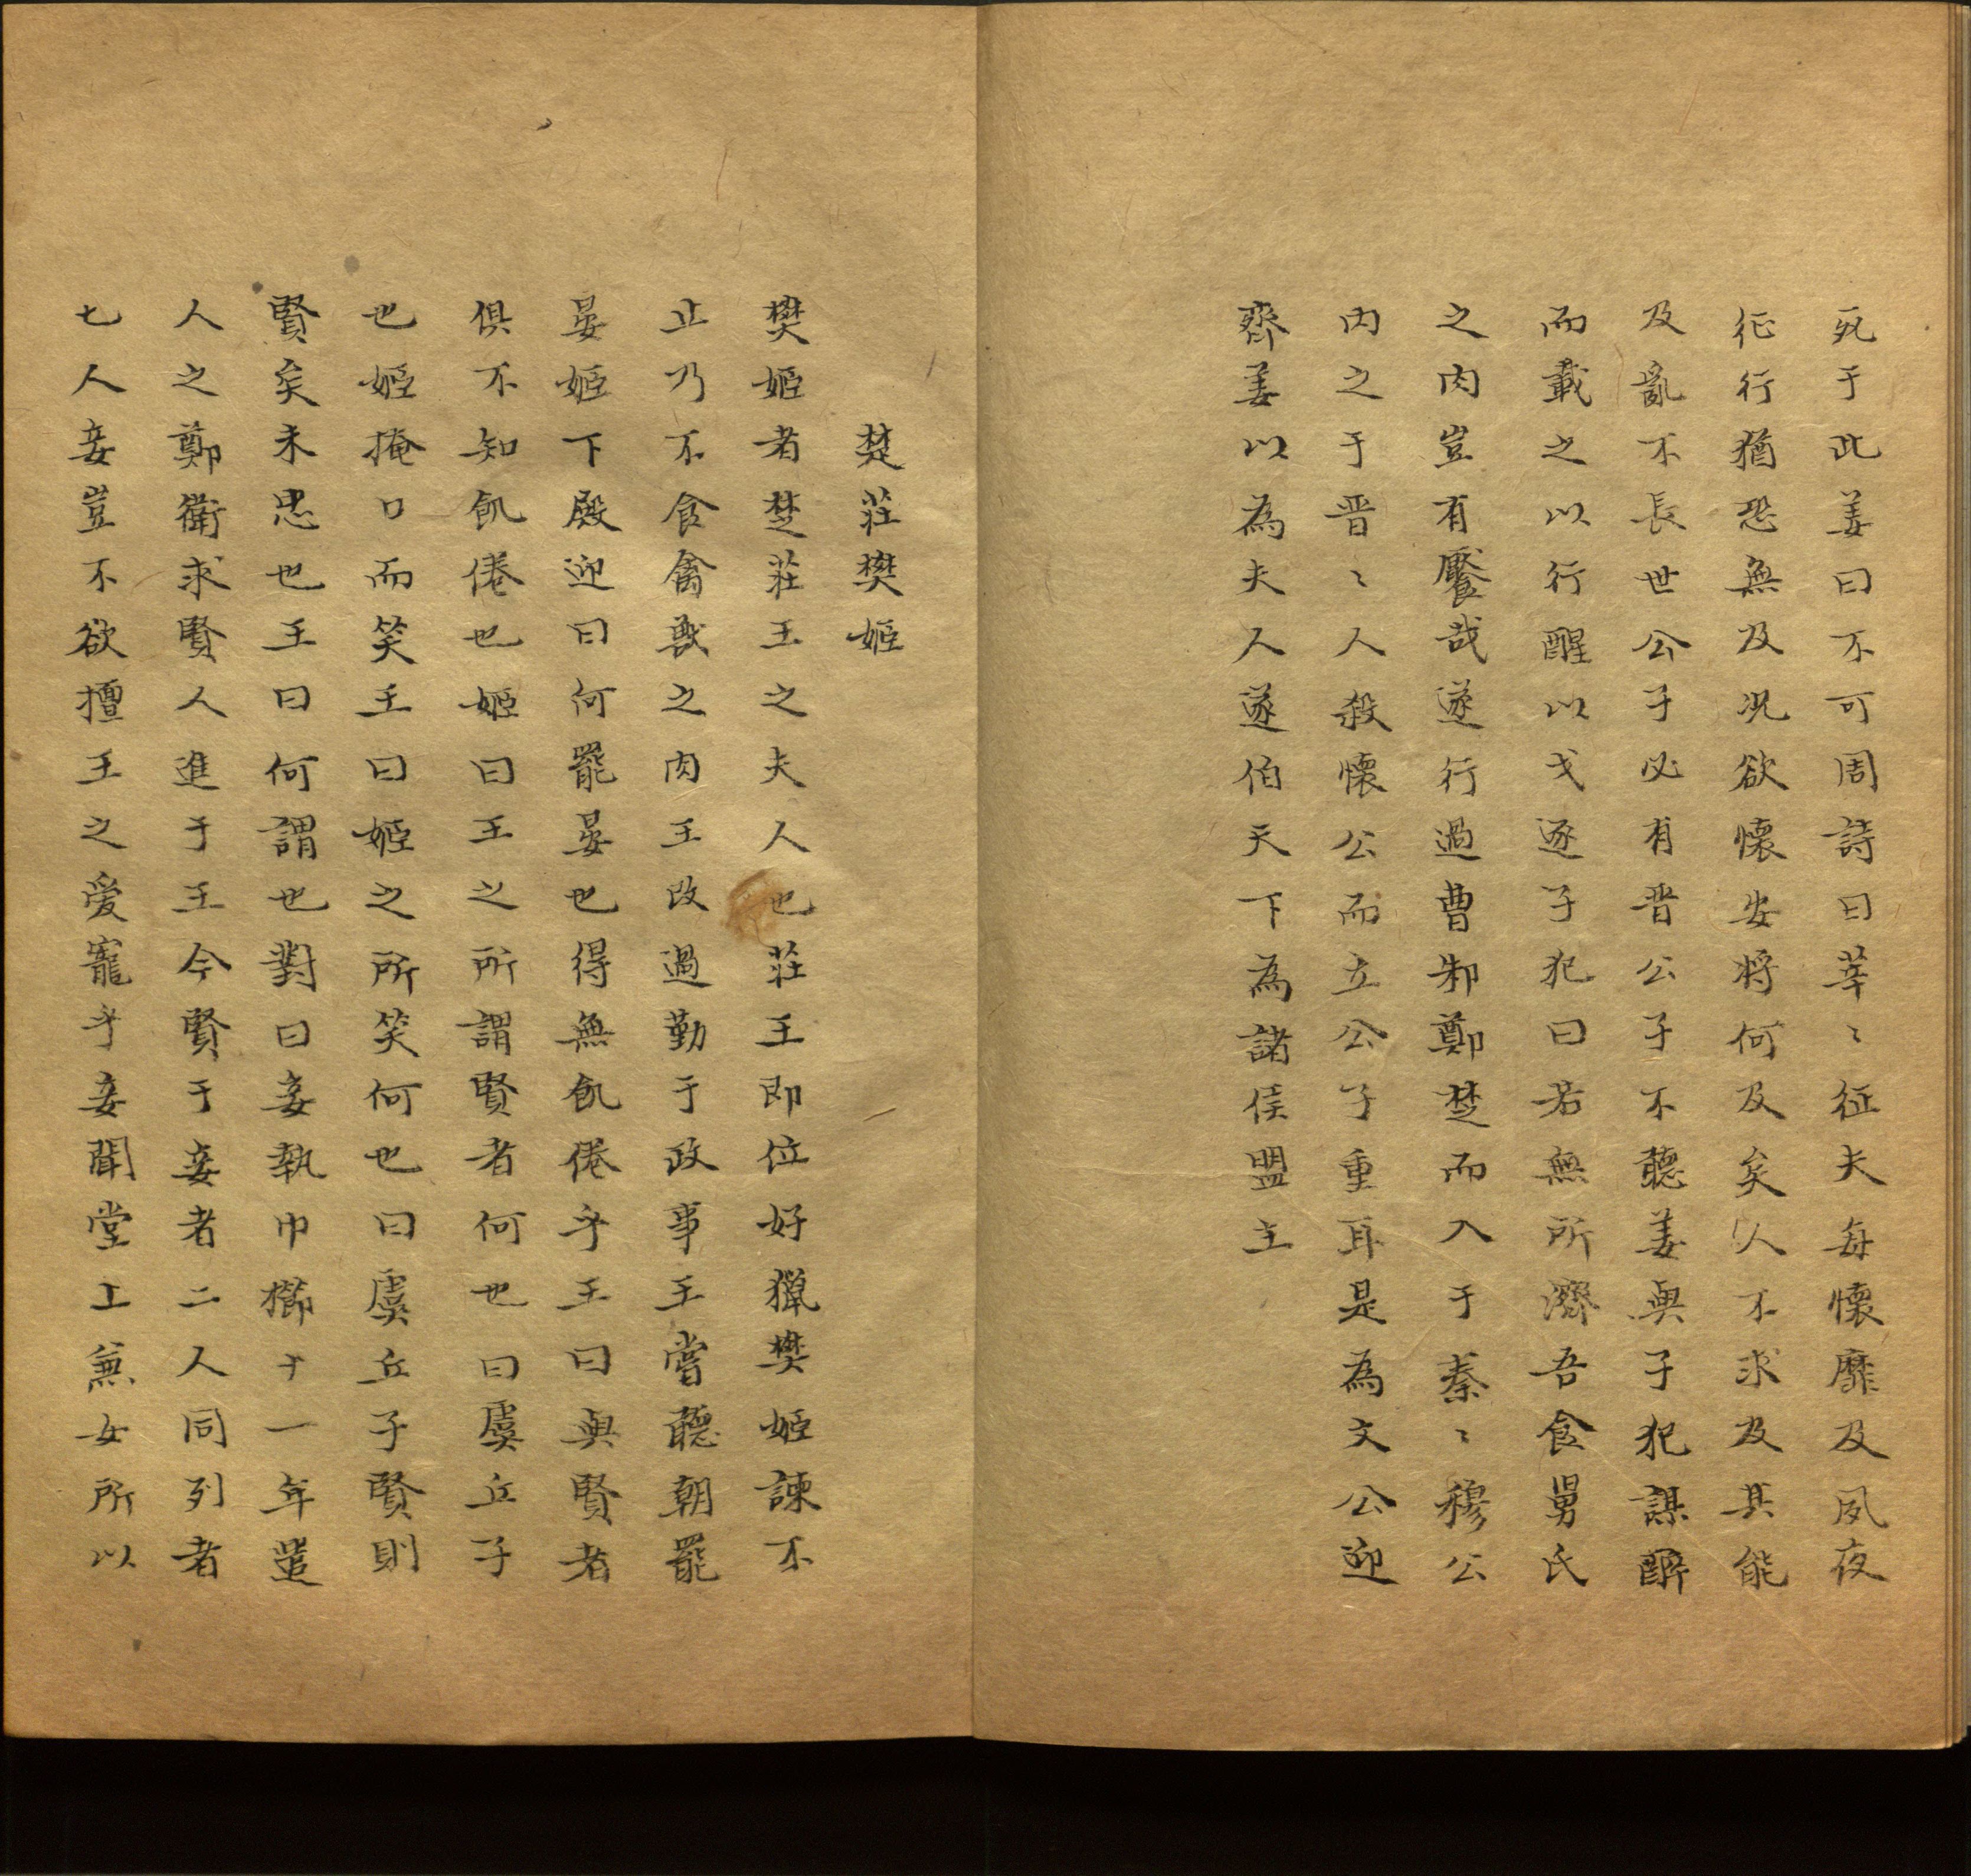 死于此姜曰不可周詩曰莘〻征夫每懷靡及夙夜
征行猶恐無及況欲懷安將何及矣人不求及其能
及亂不長世公子必有晋公子不聽姜與子犯謀醉
而載之以行醒以戈逐子犯曰若無所濟吾食舅氏
之肉豈有饜哉遂行過曹邾鄭楚而入于秦〻穆公
内之于晋〻人殺懷公而立公子重耳是為文公迎
齊姜以為夫人遂伯天下為諸侯盟主
楚莊樊姬
樊姬者楚莊王之夫人也莊王即位好獵樊姬諫不
止乃不食禽獸之肉王改過勤于政事王嘗聽朝罷
晏姬下殿迎曰何罷晏也得無飢倦乎王曰與賢者
俱不知飢倦也姬曰王之所謂賢者何也曰虞丘子
也姬掩口而笑王曰姬之所笑何也曰虞丘子賢則
賢矣未忠也王曰何謂也對曰妾執巾櫛十一年遣
人之鄭衛求賢人進于王今賢于妾者二人同列者
七人妾豈不欲擅王之爱寵乎妾聞堂上兼女所以